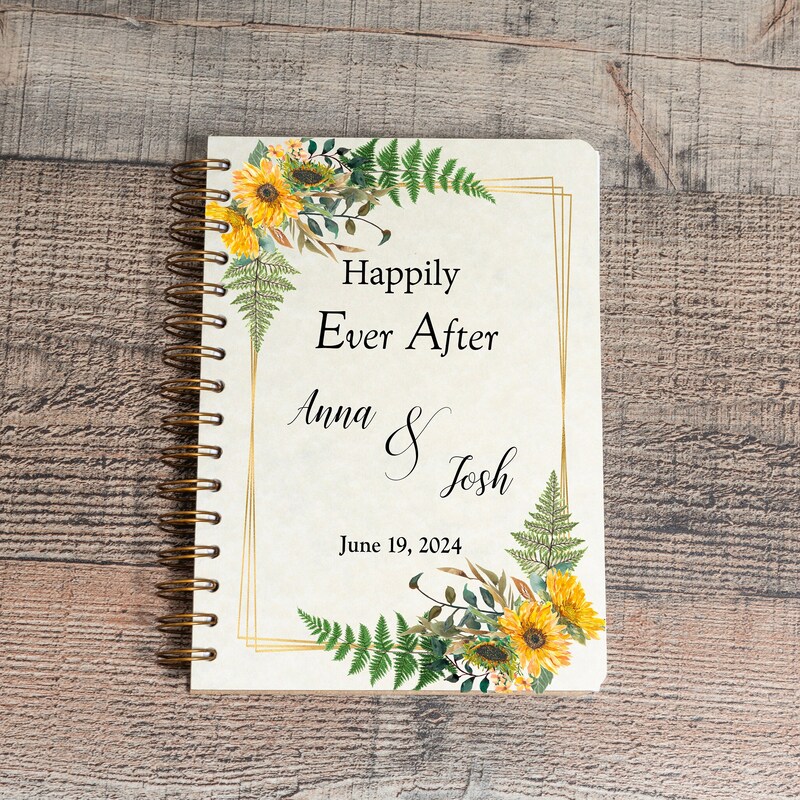 Happily
Ever After
Anna
&
Josh
June 19, 2024